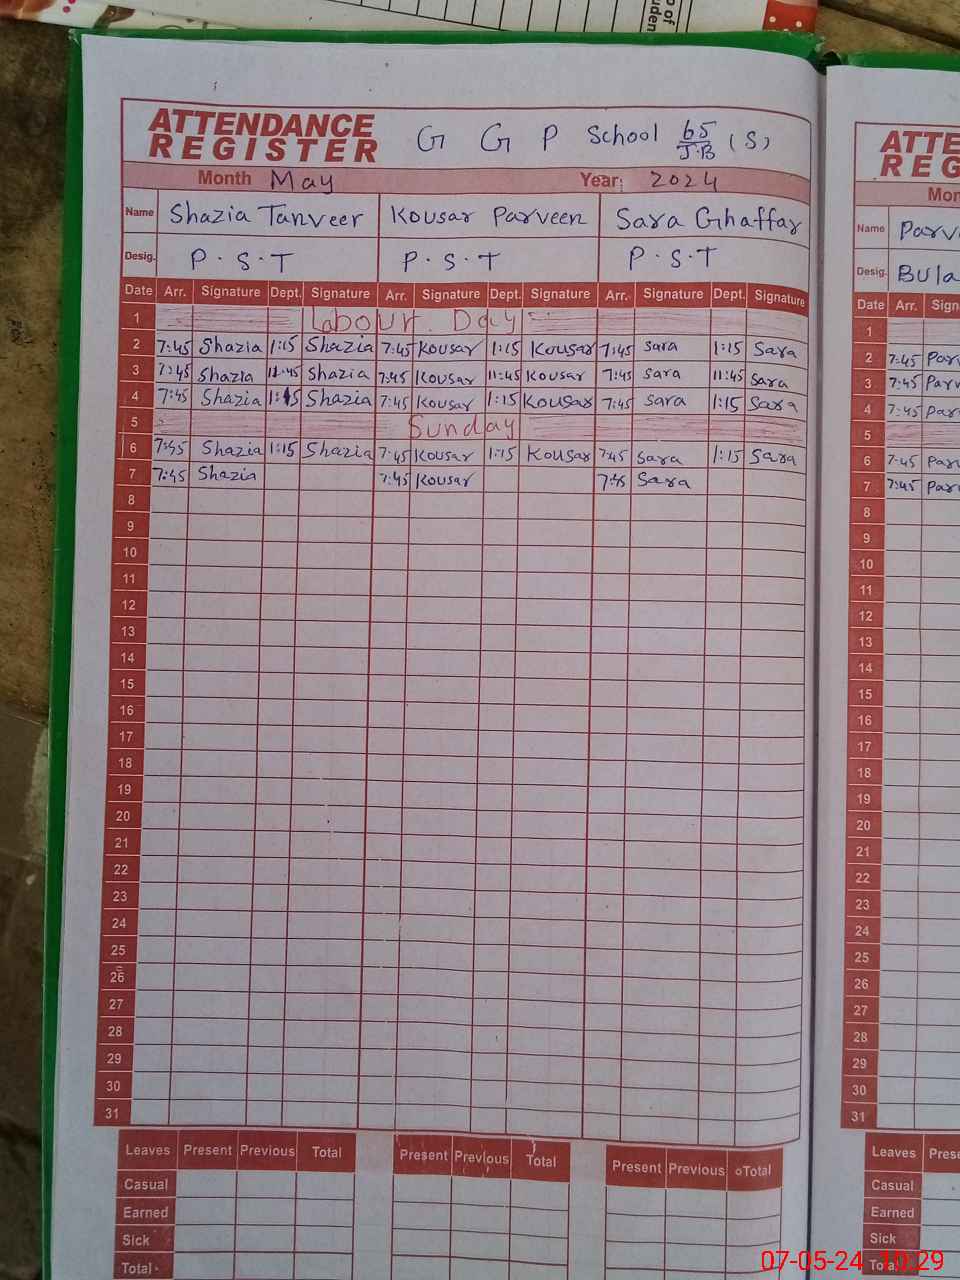 p of
uden
ATTENDANCE REGISTER G G P School 65/J.B (S)
Month May Year: 2024
Name Shazia Tanveer Kousar Parveen Sara Ghaffar
Desig. P.S.T P.S.T P.S.T
Date Arr. Signature Dept. Signature Arr. Signature Dept. Signature Arr. Signature Dept. Signature
1 Labour Day
2 7:45 Shazia 1:15 Shazia 7:45 Kousar 1:15 Kousar 7:45 Sara 1:15 Sara
3 7:45 Shazia 11:45 Shazia 7:45 Kousar 11:45 Kousar 7:45 Sara 11:45 Sara
4 7:45 Shazia 1:15 Shazia 7:45 Kousar 1:15 Kousar 7:45 Sara 1:15 Sara
5 Sunday
6 7:45 Shazia 1:15 Shazia 7:45 Kousar 1:15 Kousar 7:45 Sara 1:15 Sara
7 7:45 Shazia 7:45 Kousar 7:45 Sara
8
9
10
11
12
13
14
15
16
17
18
19
20
21
22
23
24
25
26
27
28
29
30
31
Leaves Present Previous Total Present Previous Total Present Previous Total
Casual
Earned
Sick
Total
ATTE
REG
Mon
Name Parv
Desig. Bula
Date Arr. Sign
1
2 7:45 Par
3 7:45 Parv
4 7:45 Par
5
6 7:45 Par
7 7:45 Par
8
9
10
11
12
13
14
15
16
17
18
19
20
21
22
23
24
25
26
27
28
29
30
31
Leaves Prese
Casual
Earned
Sick
Total
07-05-24 10:29